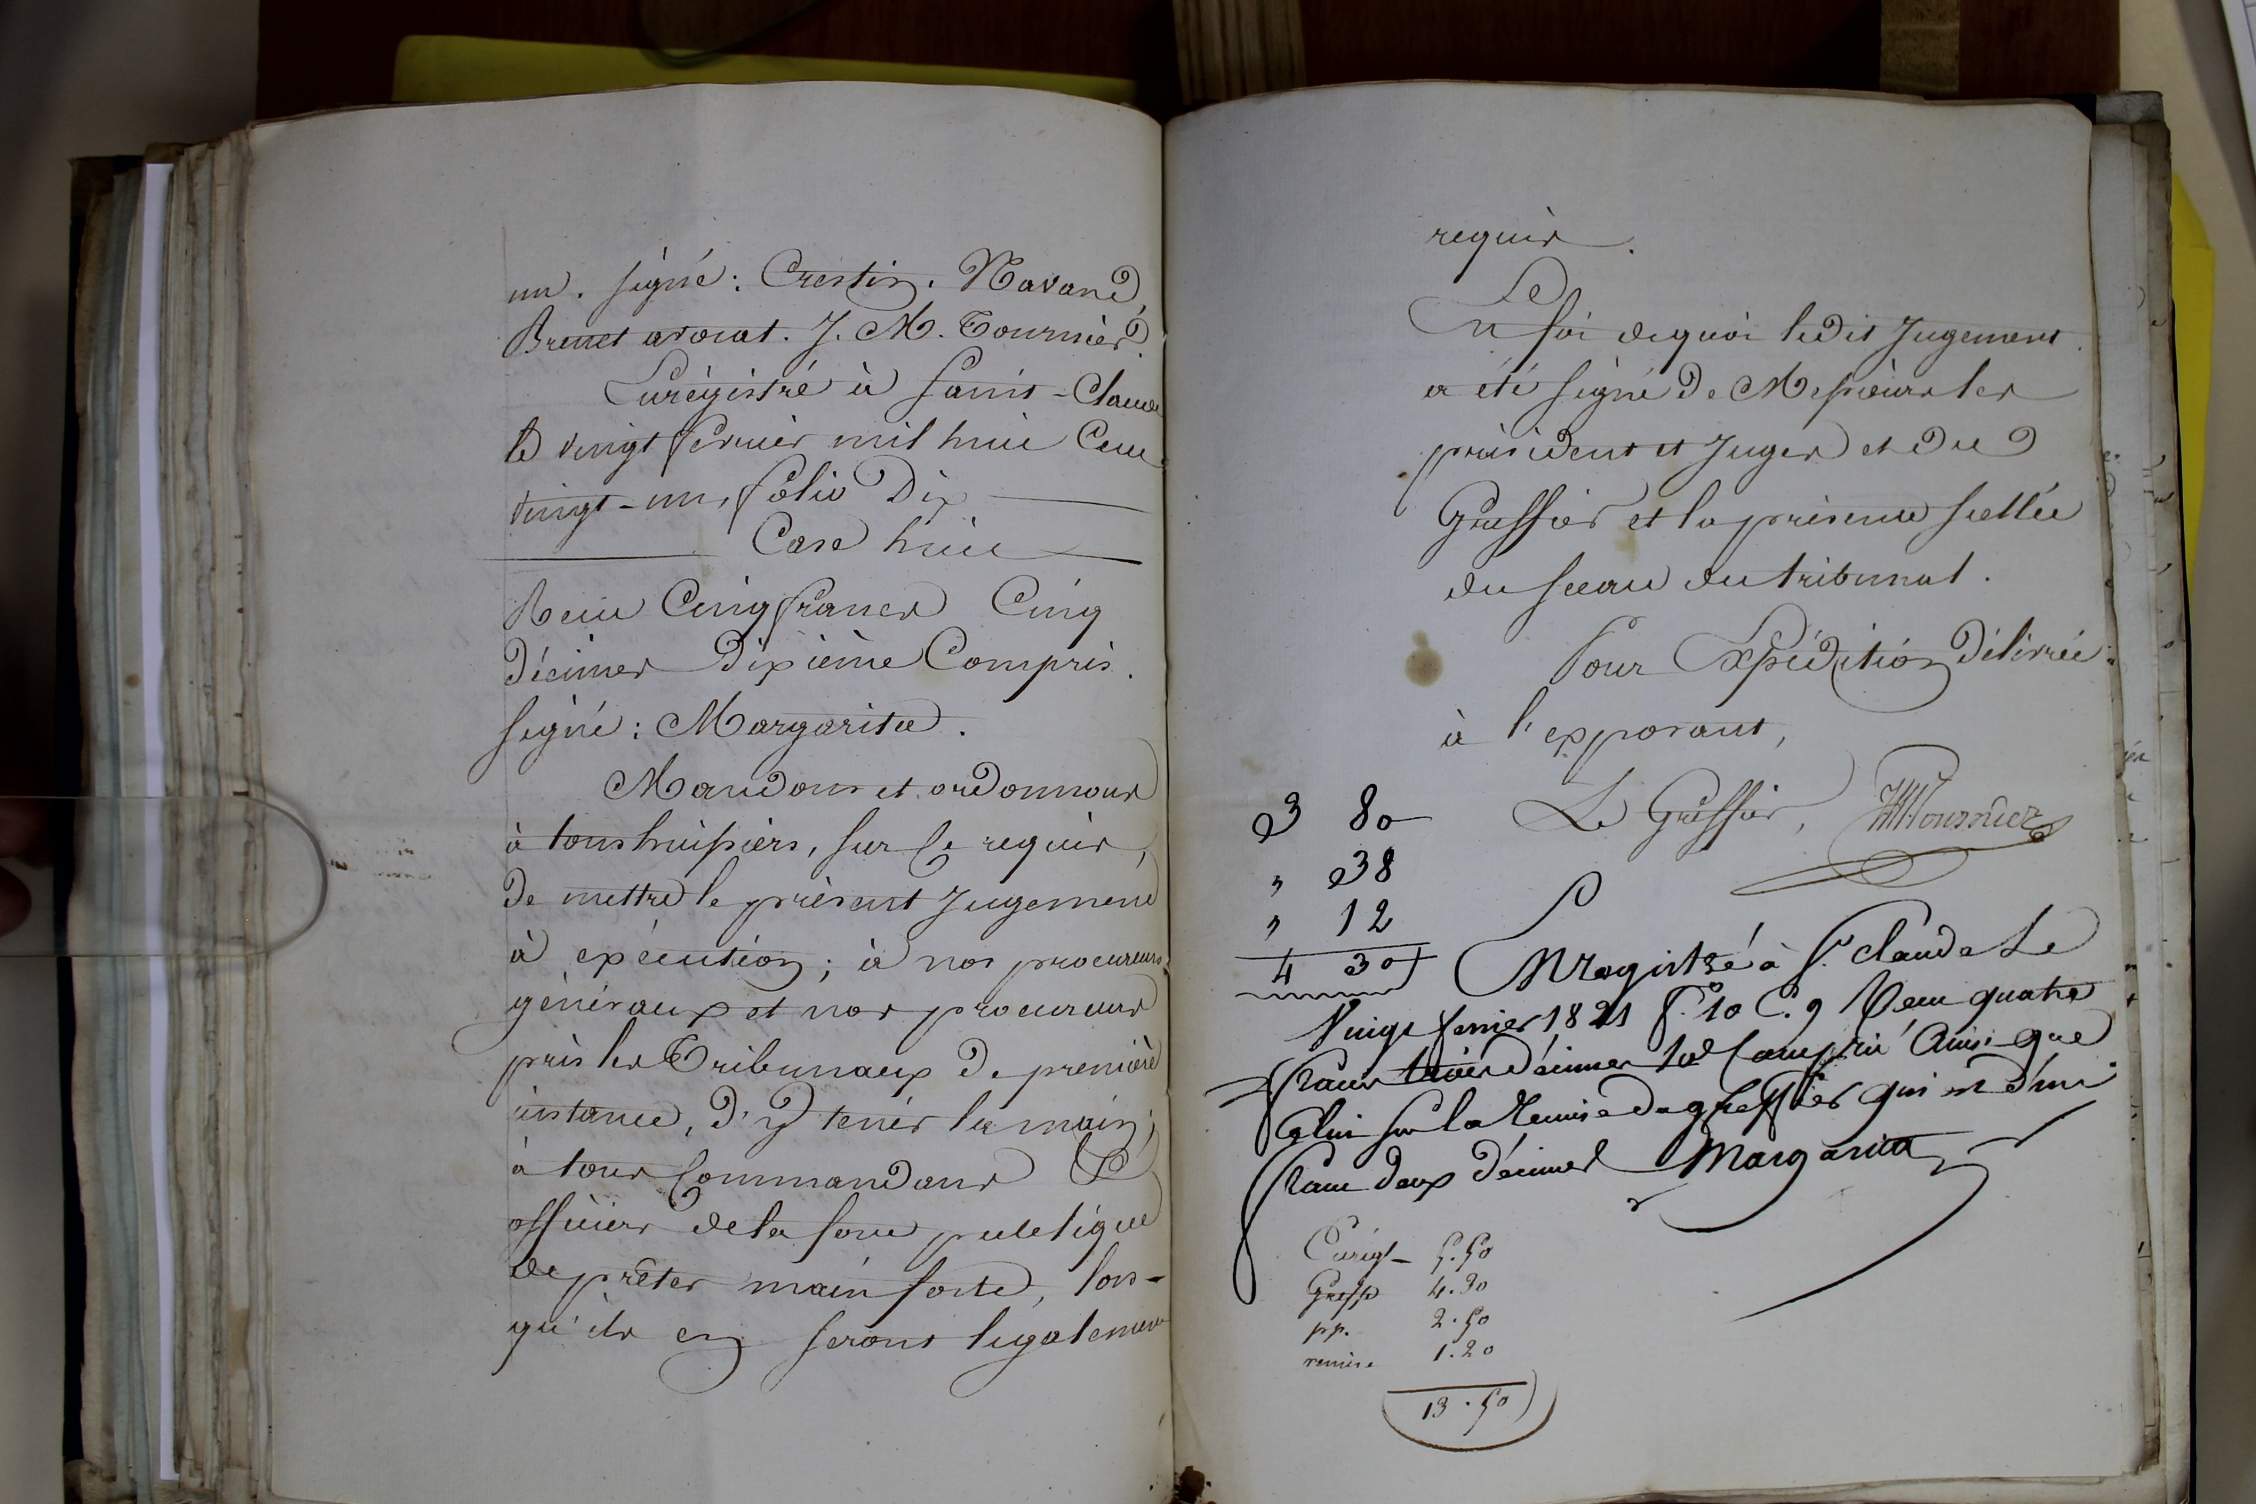 un. signé: Crestin. Navand,
Brenet avocat. J. M. Tournier.
Enrégistré à Saint-Claude
le vingt fevrier mil huit Cent
vingt-un, folio Dix
Case huit
Reçu Cinq francs Cinq
Décimes Dixième Compris.
signé: Margarita.
Mandons et ordonnons
à tous huissiers, sur ce requis,
De mettre le présent Jugement
à exécution; à nos procureurs
généraux et nos procureurs
près les Tribunaux De première
instance, D'y tenir la main;
à tous Commandans Et
officiers de la force publique
de prêter main forte, lors-
qu'ils en seront légalement
requis.
En foi de quoi ledit Jugement
a été signé De Messieurs les
président et Juges et Du
Greffier et la présente scellée
du sceau du tribunal.
Pour Expédition Délivrée
à l'exposant,
Le Greffier, JM Tournier
3 80
" 38
" 12
4 30
Enregistré à St. Claude Le
Vingt fevrier 1821 f.° 10 C. 9 Reçu quatre
francs trois décimes 10e Compris Ainsi que
Celui sur la Remise du greffier qui est d'un
franc deux décimes Margarita
Enrigt- 5.50
Greffe 4.30
pp. 2.50
remise 1.20
13.50